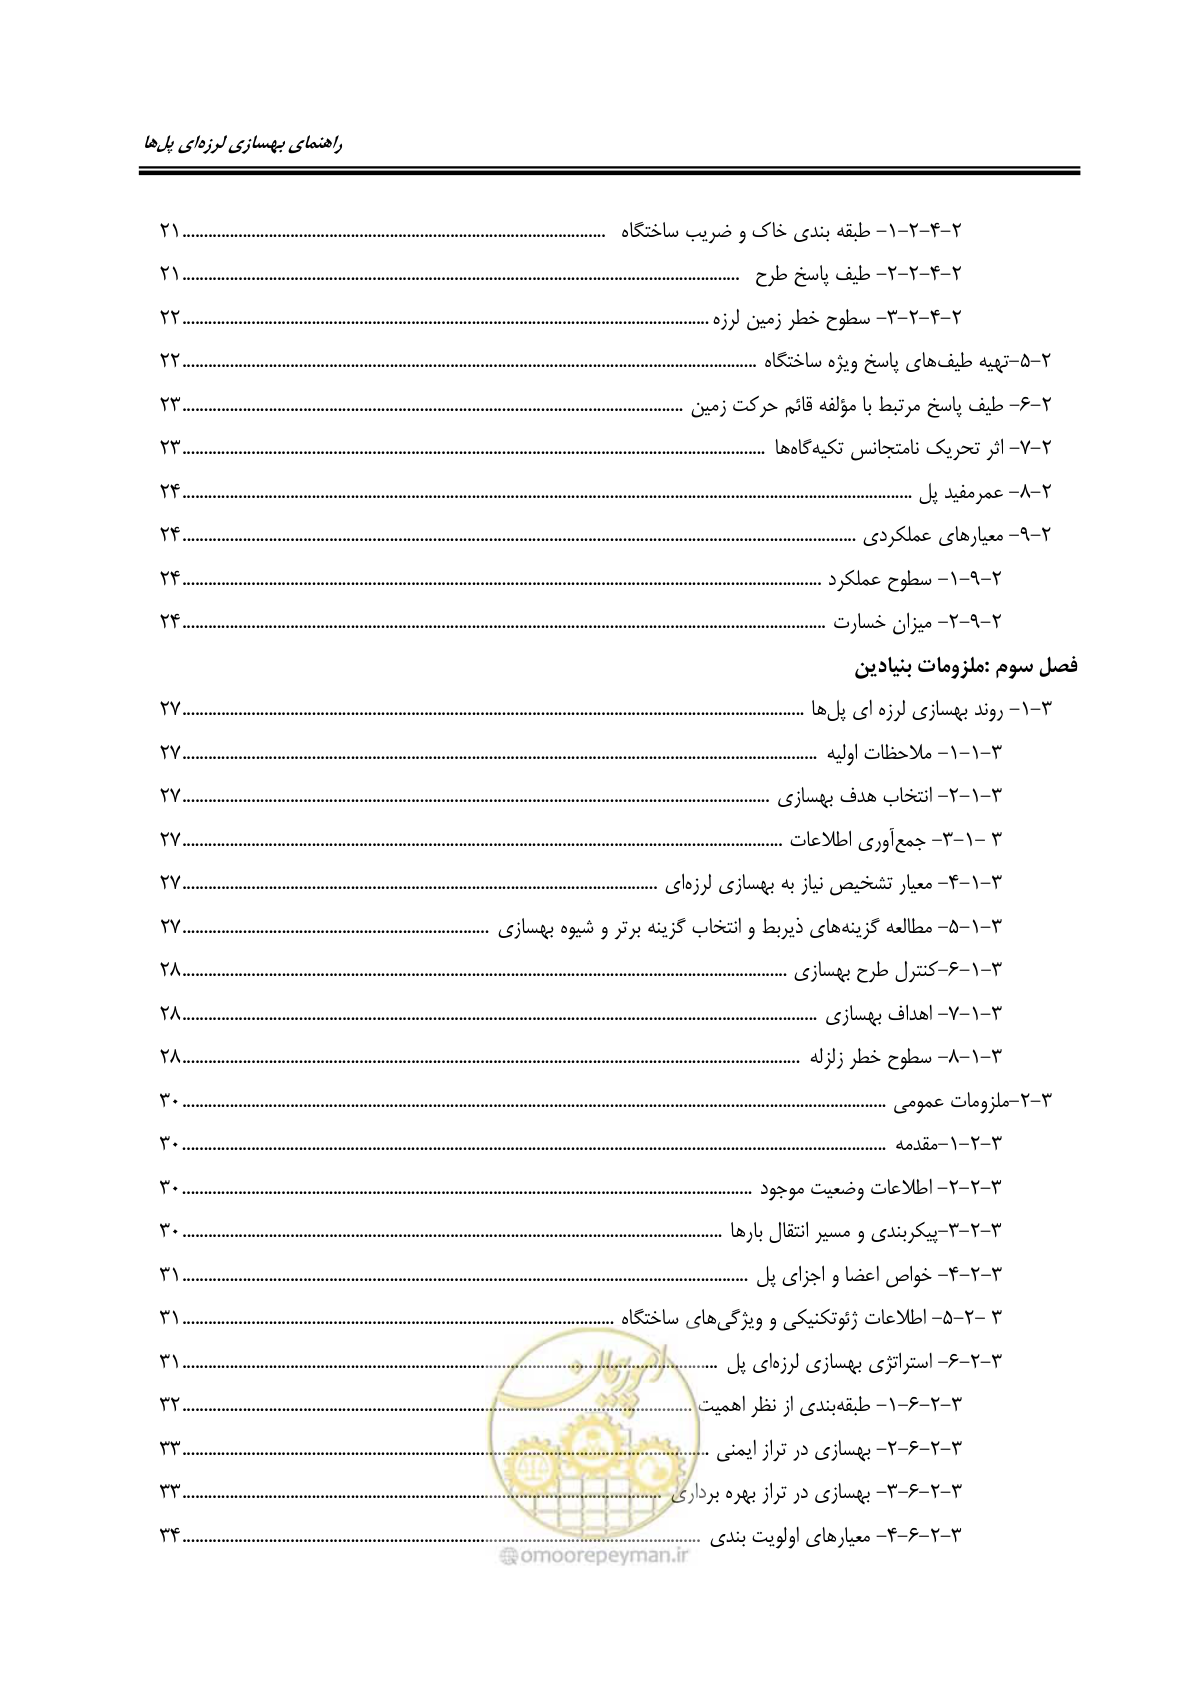 راهنمای بهسازی لرزه‌ای پل‌ها
۲-۴-۲-۱- طبقه بندی خاک و ضریب ساختگاه ..... ۲۱
۲-۴-۲-۲- طیف پاسخ طرح ..... ۲۱
۲-۴-۲-۳- سطوح خطر زمین لرزه ..... ۲۲
۲-۵-تهیه طیف‌های پاسخ ویژه ساختگاه ..... ۲۲
۲-۶- طیف پاسخ مرتبط با مؤلفه قائم حرکت زمین ..... ۲۳
۲-۷- اثر تحریک نامتجانس تکیه‌گاه‌ها ..... ۲۳
۲-۸- عمرمفید پل ..... ۲۴
۲-۹- معیارهای عملکردی ..... ۲۴
۲-۹-۱- سطوح عملکرد ..... ۲۴
۲-۹-۲- میزان خسارت ..... ۲۴
فصل سوم :ملزومات بنیادین
۳-۱- روند بهسازی لرزه ای پل‌ها ..... ۲۷
۳-۱-۱- ملاحظات اولیه ..... ۲۷
۳-۱-۲- انتخاب هدف بهسازی ..... ۲۷
۳ -۱-۳- جمع‌آوری اطلاعات ..... ۲۷
۳-۱-۴- معیار تشخیص نیاز به بهسازی لرزه‌ای ..... ۲۷
۳-۱-۵- مطالعه گزینه‌های ذیربط و انتخاب گزینه برتر و شیوه بهسازی ..... ۲۷
۳-۱-۶-کنترل طرح بهسازی ..... ۲۸
۳-۱-۷- اهداف بهسازی ..... ۲۸
۳-۱-۸- سطوح خطر زلزله ..... ۲۸
۳-۲-ملزومات عمومی ..... ۳۰
۳-۲-۱-مقدمه ..... ۳۰
۳-۲-۲- اطلاعات وضعیت موجود ..... ۳۰
۳-۲-۳-پیکربندی و مسیر انتقال بارها ..... ۳۰
۳-۲-۴- خواص اعضا و اجزای پل ..... ۳۱
۳ -۲-۵- اطلاعات ژئوتکنیکی و ویژگی‌های ساختگاه ..... ۳۱
۳-۲-۶- استراتژی بهسازی لرزه‌ای پل ..... ۳۱
۳-۲-۶-۱- طبقه‌بندی از نظر اهمیت ..... ۳۲
۳-۲-۶-۲- بهسازی در تراز ایمنی ..... ۳۳
۳-۲-۶-۳- بهسازی در تراز بهره برداری ..... ۳۳
۳-۲-۶-۴- معیارهای اولویت بندی ..... ۳۴
امور پیمان
@omoorepeyman.ir